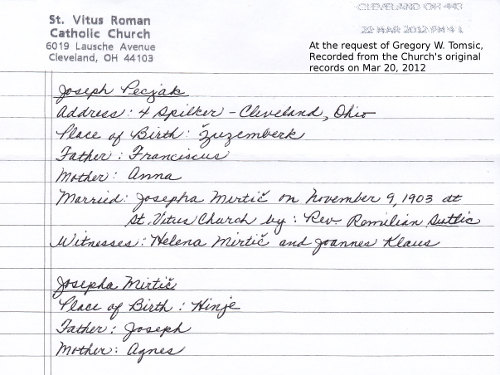 CLEVELAND OH 440
22 MAR 2012 PM 4 L
St. Vitus Roman
Catholic Church
6019 Lausche Avenue
Cleveland, OH 44103
At the request of Gregory W. Tomsic,
Recorded from the Church's original
records on Mar 20, 2012
Joseph Peczak
Address: 4 Spilker - Cleveland, Ohio
Place of Birth: Žuzemberk
Father: Franciscus
Mother: Anna
Married: Josepha Mirtič on November 9, 1903 at
St. Vitus Church by: Rev. Remilian
Witnesses: Helena Mirtič and Joannes Klaus
Josepha Mirtič
Place of Birth: Hinje
Father: Joseph
Mother: Agnes